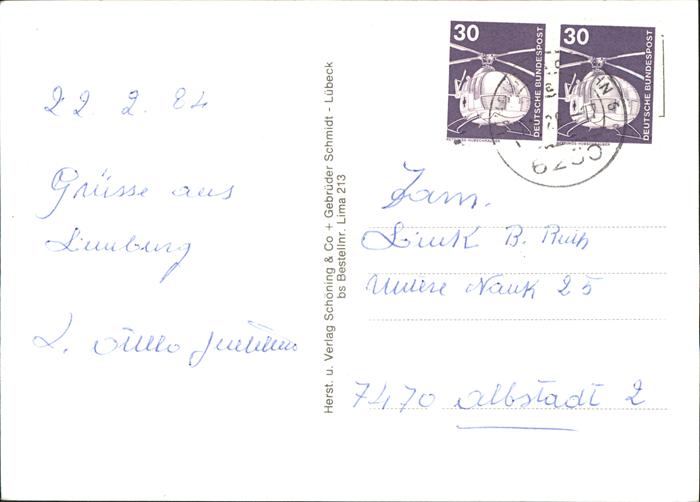 22. 2. 84
Grüsse aus
Limburg
Herst. u. Verlag Schöning & Co + Gebrüder Schmidt - Lübeck
bs Bestellnr. Lima 213
30
DEUTSCHE BUNDESPOST
RETTUNGS-HUBSCHRAUBER
30
DEUTSCHE BUNDESPOST
RETTUNGS-HUBSCHRAUBER
Fam.
B. Ruth
Untere Bank 25
7470 Albstadt 2